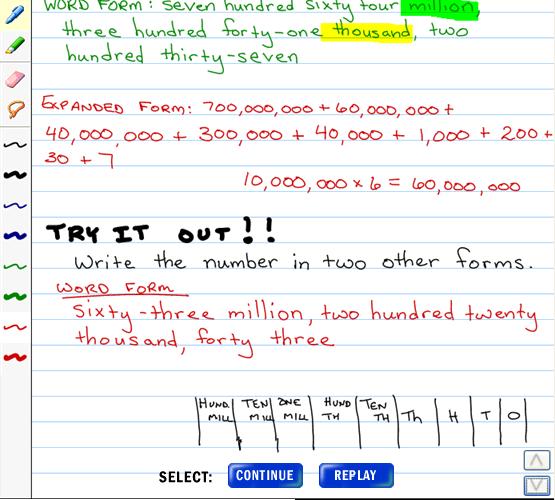 WORD FORM: seven hundred sixty four million,
three hundred forty-one thousand, two
hundred thirty-seven
EXPANDED FORM: 700,000,000 + 60,000,000 +
40,000,000 + 300,000 + 40,000 + 1,000 + 200 +
30 + 7
10,000,000 x 6 = 60,000,000
TRY IT OUT!!
Write the number in two other forms.
WORD FORM
Sixty-three million, two hundred twenty
thousand, forty three
HUND. MILL TEN MILL ONE MILL HUND TH TEN TH Th H T O
SELECT: CONTINUE REPLAY